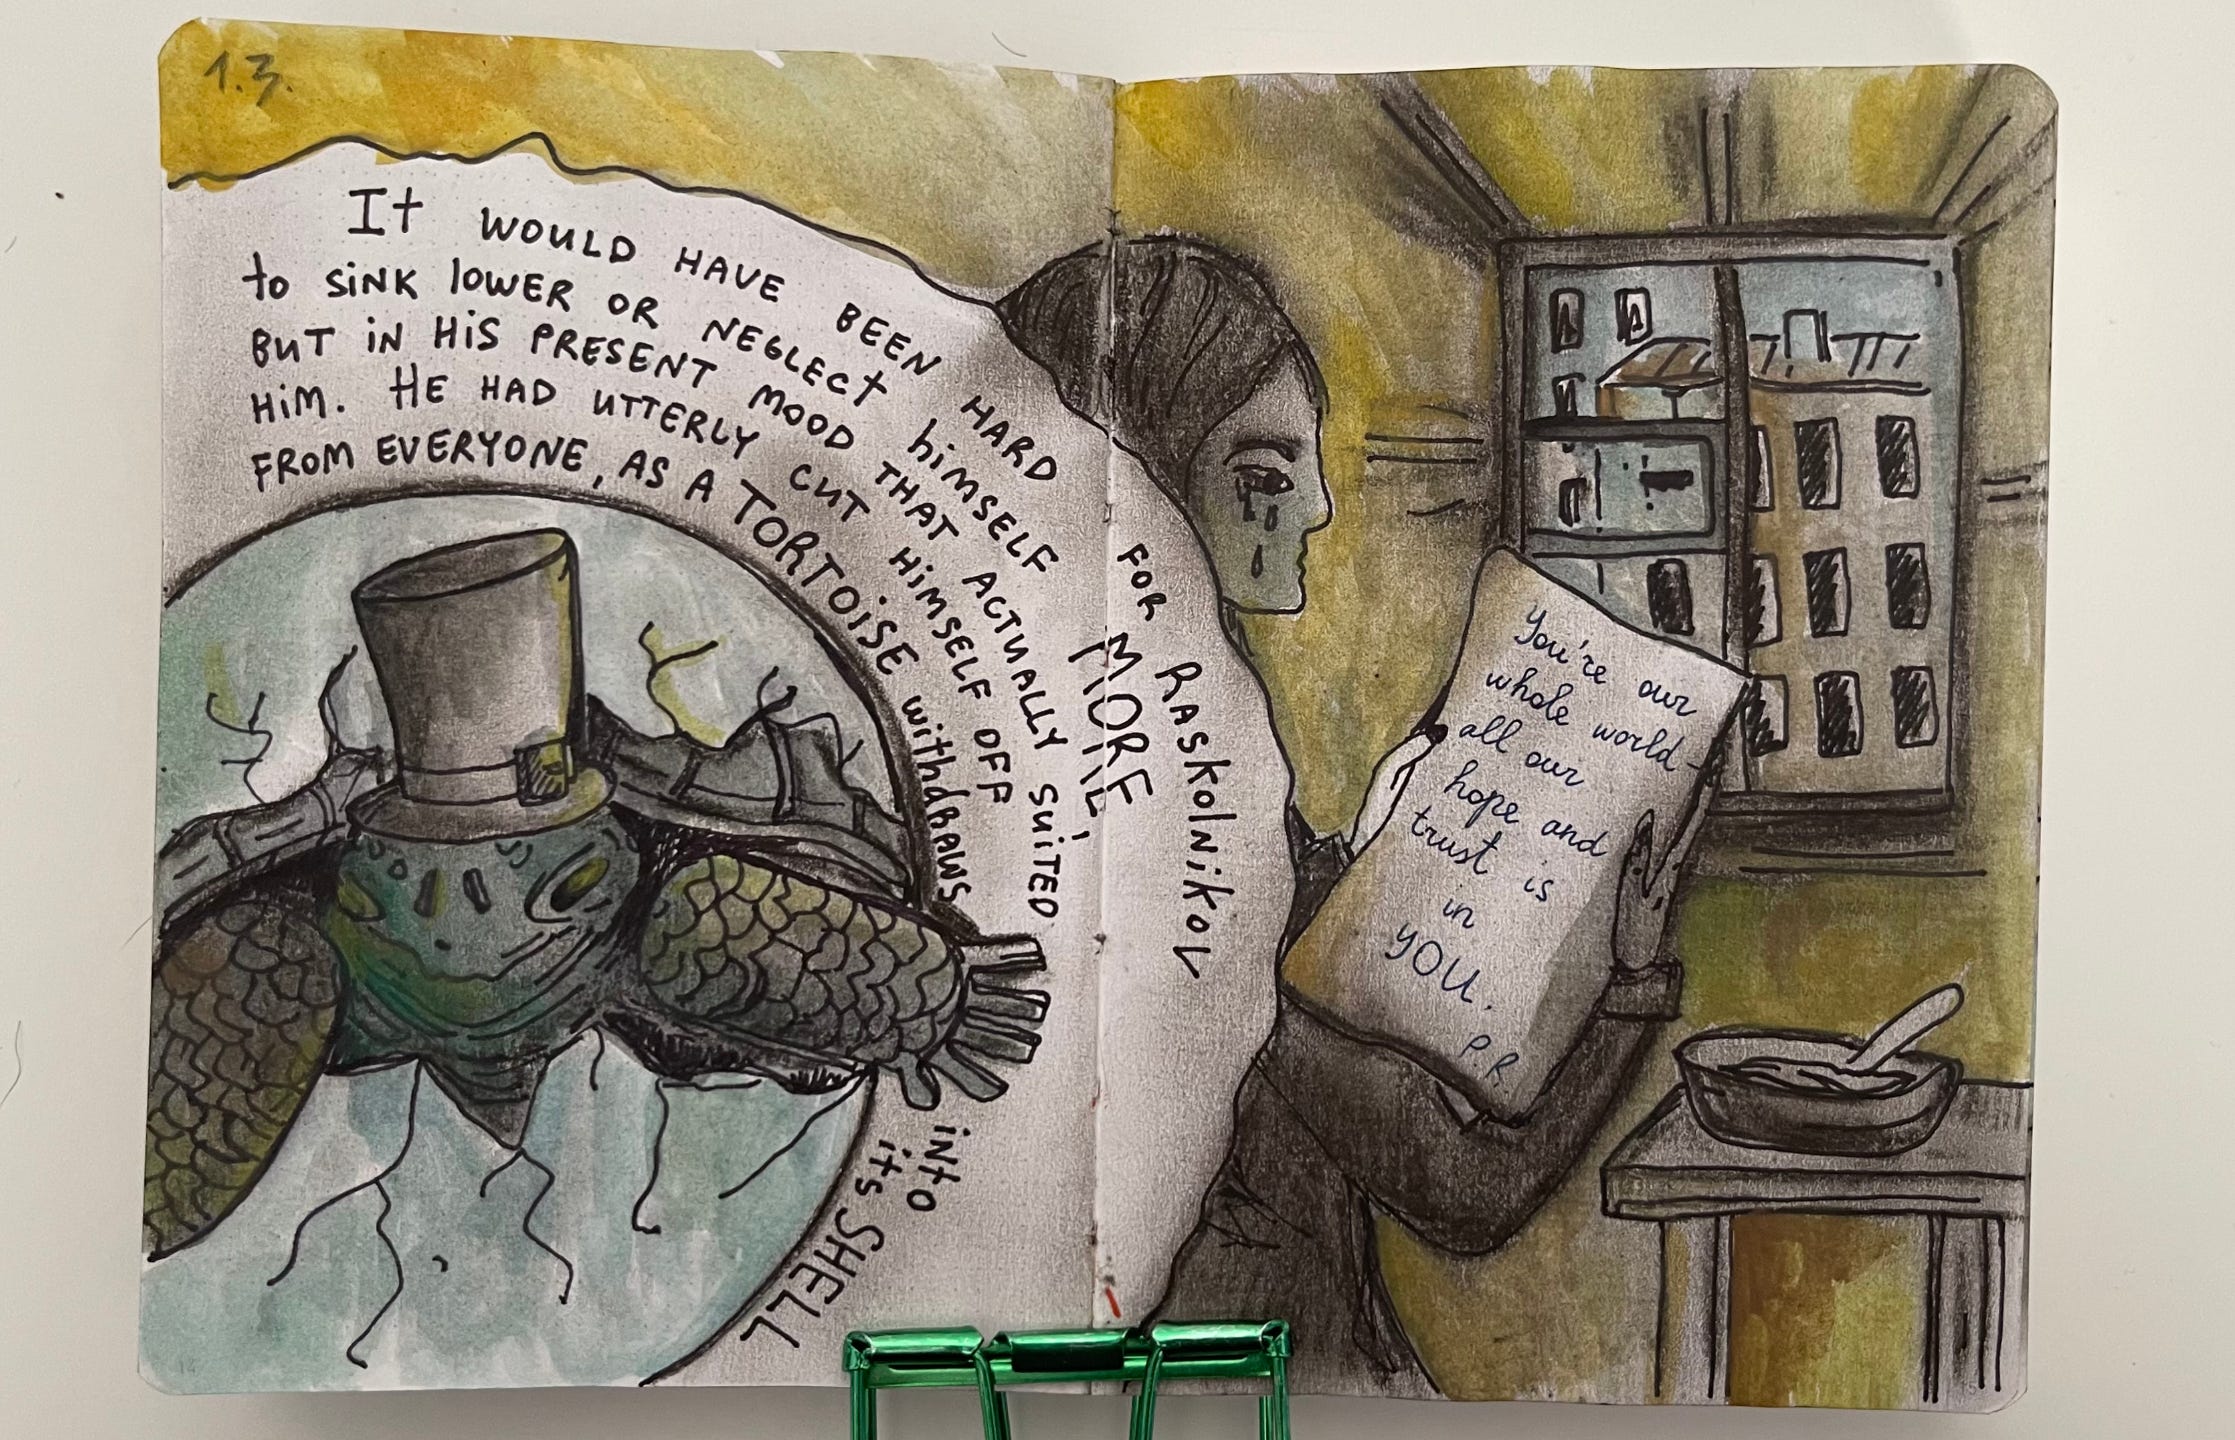 1.3.
It WOULD HAVE BEEN HARD FOR RASKOLNIKOV
to SiNK lOWER OR NEGLECt hiMSELF MORE,
BUT iN HiS PRESENT MOOD THAT ACTUALLY SUiTED
HiM. HE HAD UTTERLY CUT HiMSELF OFF
FROM EVERYONE, AS A TORTOiSE withdRAWS iNtO
its SHELL
You're our
whole world -
all our
hope and
trust is
in
YOU.
P.R.